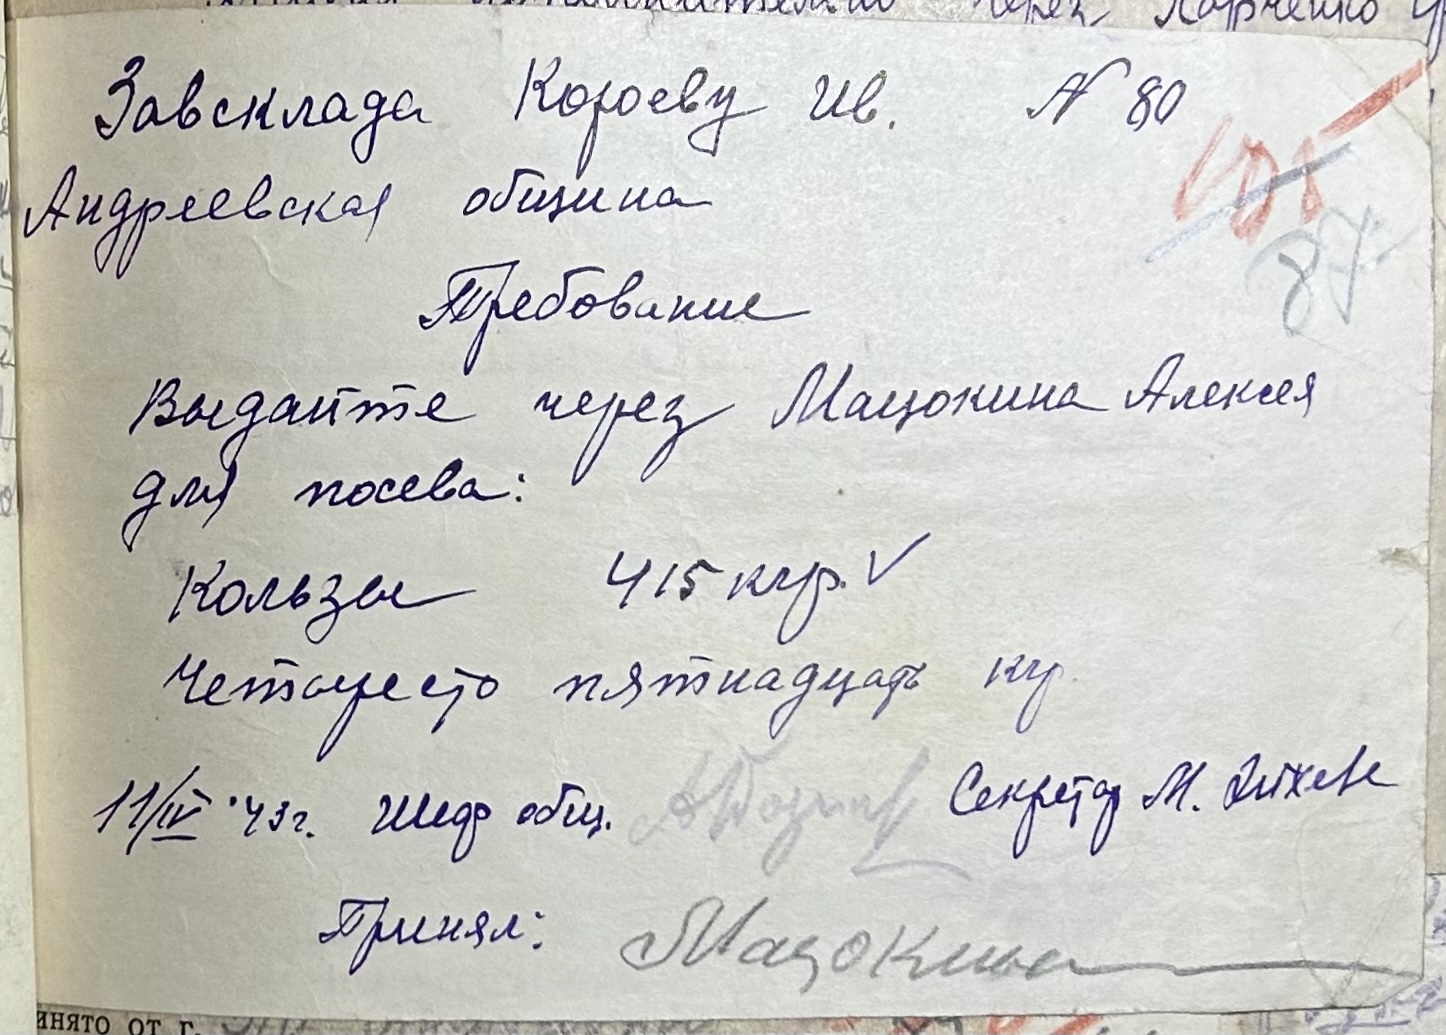 через
Завсклада Короеву Ив. N 80
Андреевская община
105
87
Требование
Выдайте через Мацокина Алексея
для посева:
Кользы 415 кгр. ✓
Четыресто пятнадцать кгр.
11/IV '43г. Шеф общ. Секретар М.
Принял: Мацокин
инято от г.